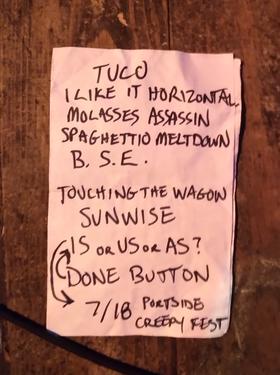 TUCO
I LIKE IT HORIZONTAL
MOLASSES ASSASSIN
SPAGHETTIO MELTDOWN
B. S. E.
TOUCHING THE WAGON
SUNWISE
IS OR US OR AS?
DONE BUTTON
7/18 PORTSIDE
CREEPY FEST